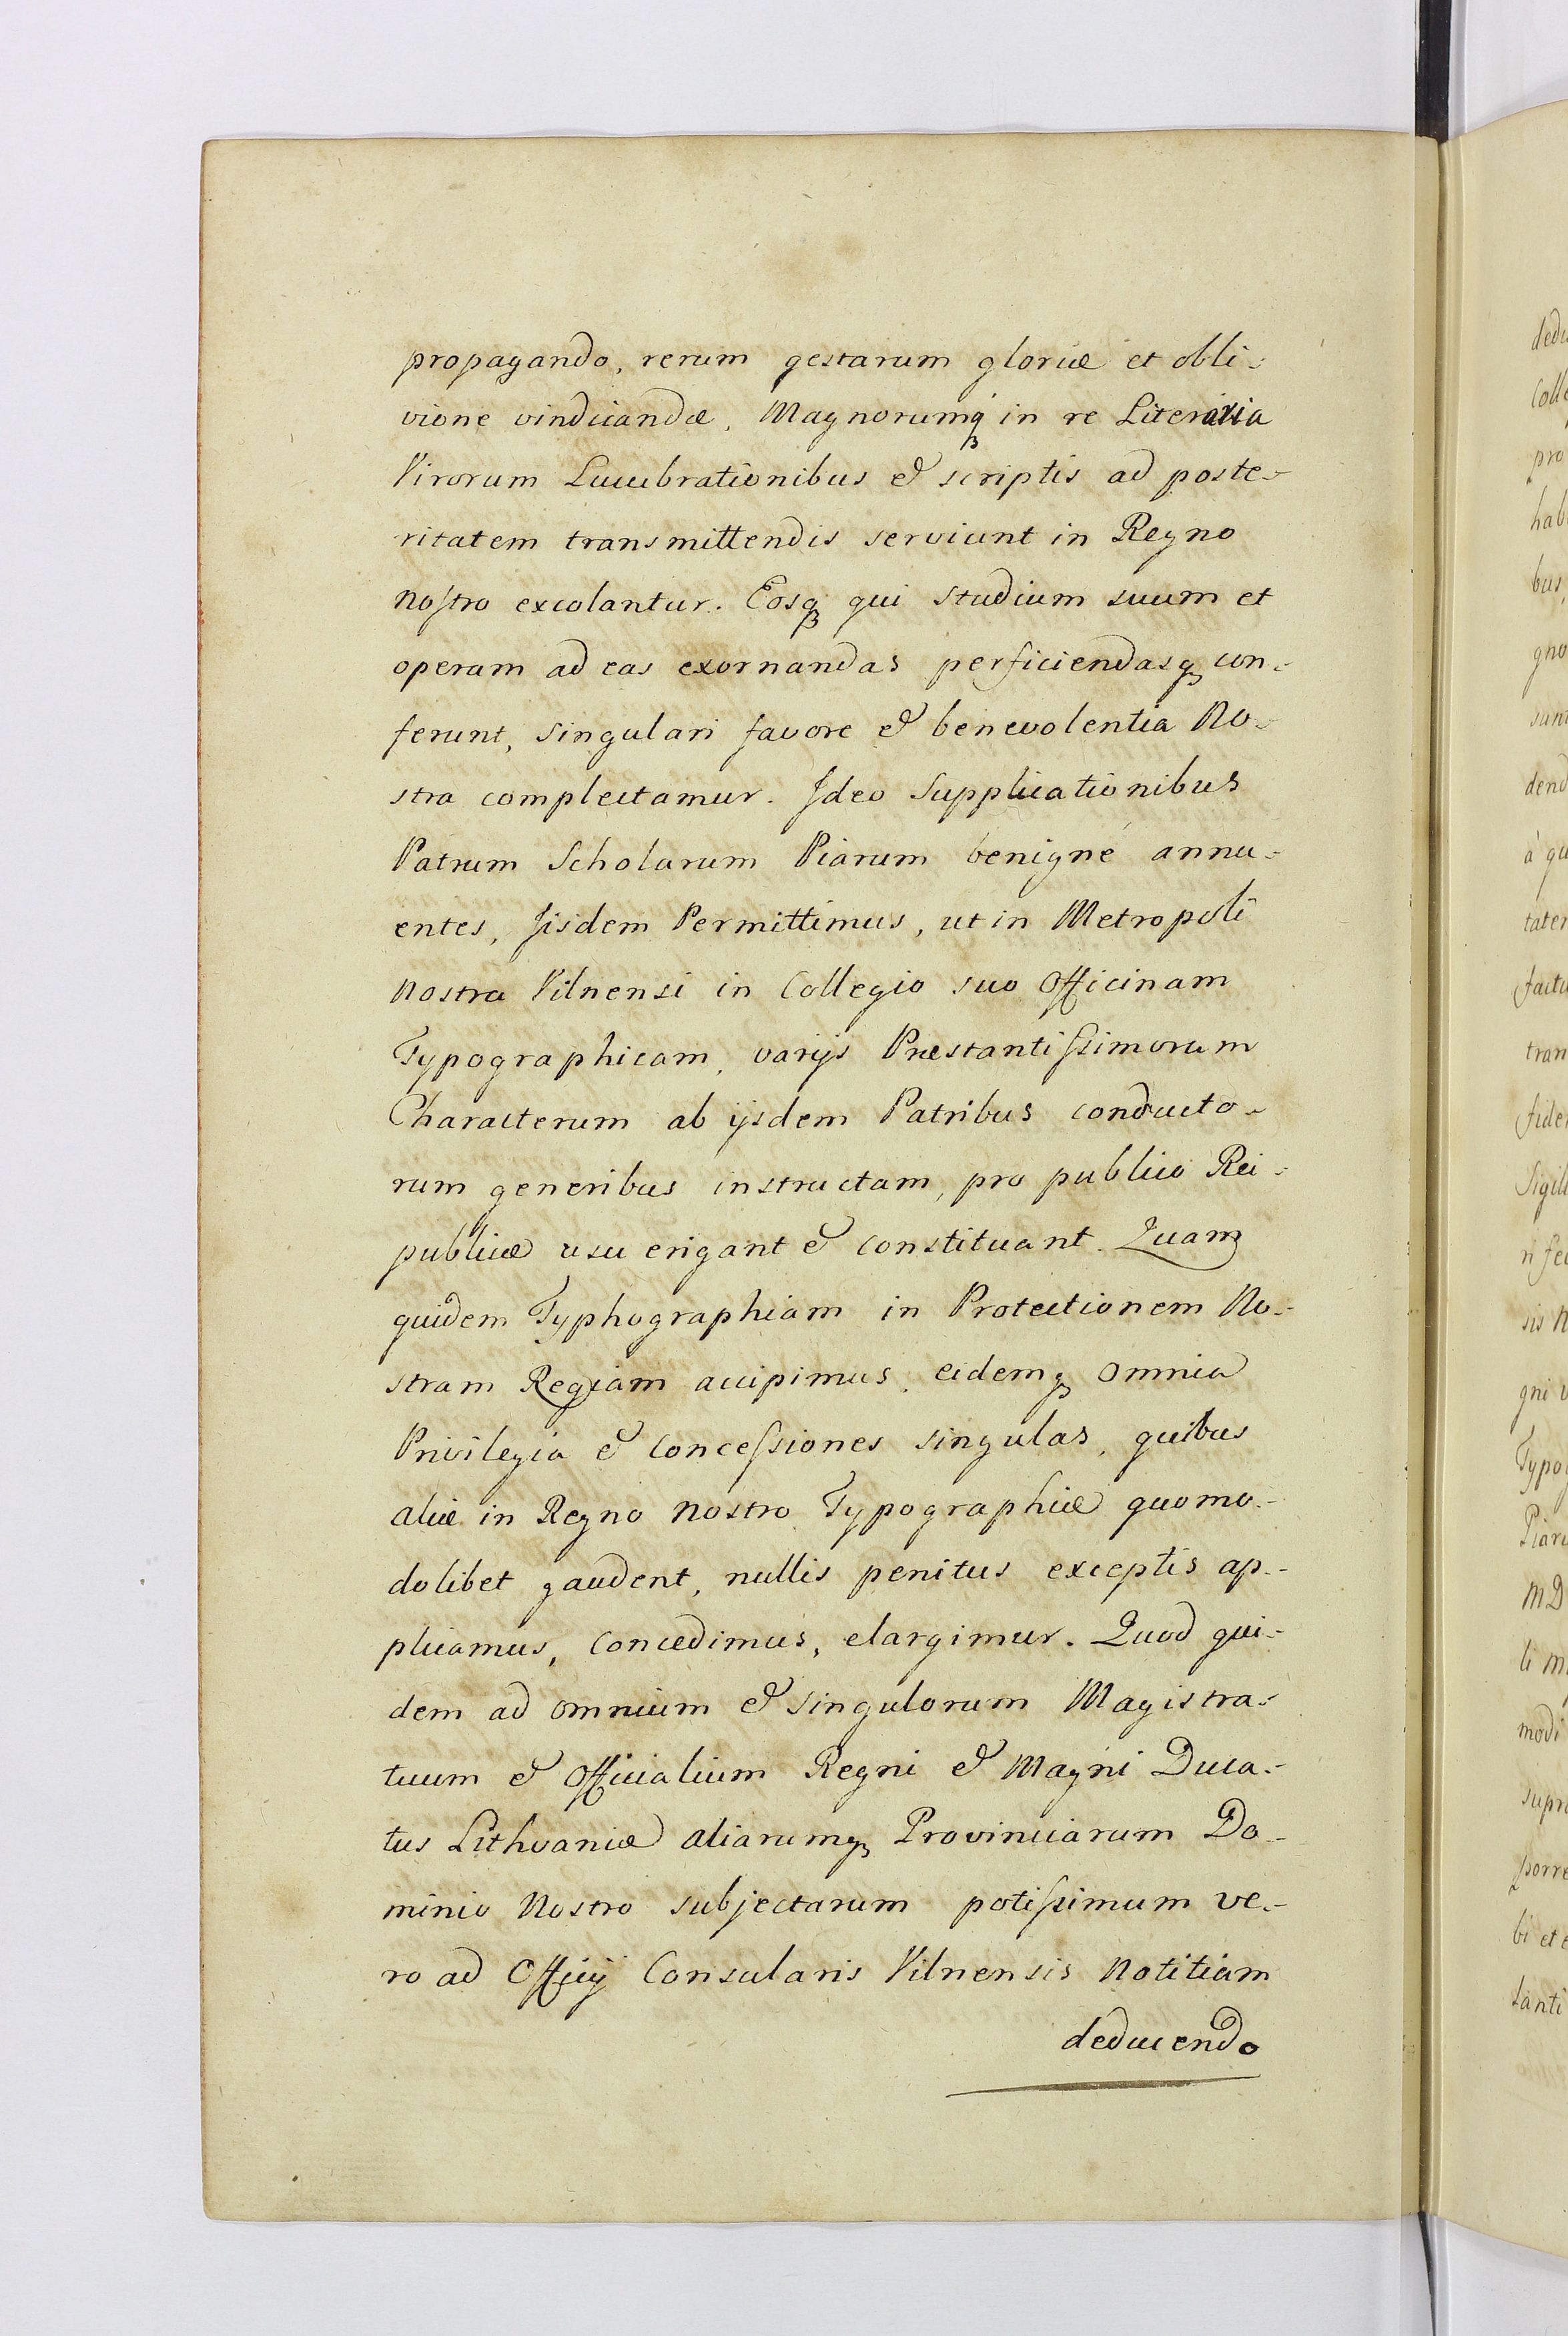 propagando, rerum gestarum gloriæ et obli-
vione vindicandæ, Magnorumq́ꝫ in re Literaria
Virorum Lucubrationibus & scriptis ad poste-
ritatem transmittendis serviunt in Regno
noſtro excolantur. Eosqꝫ qui studium suum et
operam ad eas exornandas perficiendasqꝫ con-
ferunt, singulari favore & benevolentia No-
stra complectamur. Ideo Supplicationibus
Patrum Scholarum Piarum benigné annu-
entes, Iisdem Permittimus, ut in Metropoli
nostra Vilnensi in Collegio suo Officinam
Typographicam, varijs Præstantiſsimorum
Characterum ab ijsdem Patribus conducto-
rum generibus instructam, pro publico Rei-
publicæ usu erigant & constituant. Quam
quidem Typhographiam in Protectionem No-
stram Regiam accipimus, eidemqꝫ omnia
Privilegia & conceſsiones singulas, quibus
aliæ in Regno nostro Typographiæ quomo-
dolibet gaudent, nullis penitus exceptis ap-
plicamus, concedimus, elargimur. Quod qui-
dem ad omnium & singulorum Magistra-
tuum & Officialium Regni & Magni Duca-
tus Lithvaniæ aliarumqꝫ Provinciarum Do-
minio Nostro subjectarum potiſsimum ve-
ro ad Officij Consularis Vilnensis notitiam
deducendo